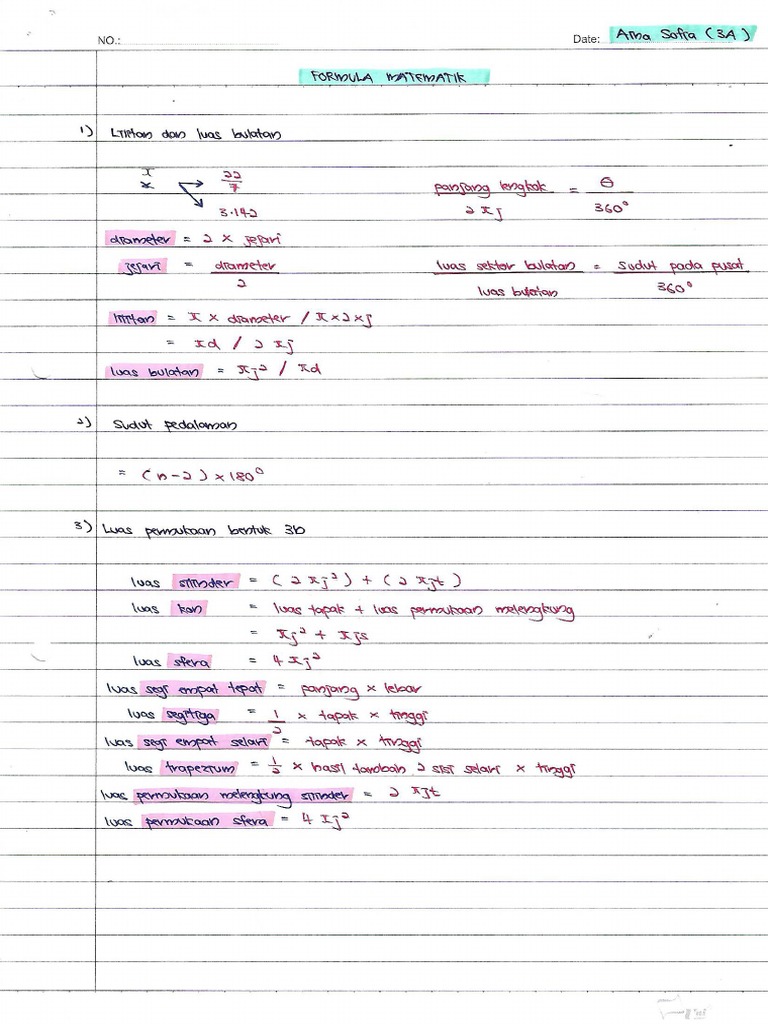 NO.:
Date: Alna Sofia (3A)
FORMULA MATEMATIK
1) Lilitan dan luas bulatan
π
22/7
3.142
panjang lengkok / 2πj = θ / 360°
diameter = 2 × jejari
jejari = diameter / 2
luas sektor bulatan / luas bulatan = sudut pada pusat / 360°
lilitan = π × diameter / π×2×j
= πd / 2πj
luas bulatan = πj² / πd
2) Sudut pedalaman
= (n-2) × 180°
3) Luas permukaan bentuk 3D
luas silinder = (2πj²) + (2πjt)
luas kon = luas tapak + luas permukaan melengkung
= πj² + πjs
luas sfera = 4πj²
luas segi empat tepat = panjang × lebar
luas segitiga = 1/2 × tapak × tinggi
luas segi empat selari = tapak × tinggi
luas trapezium = 1/2 × hasil tambah 2 sisi selari × tinggi
luas permukaan melengkung silinder = 2πjt
luas permukaan sfera = 4πj²